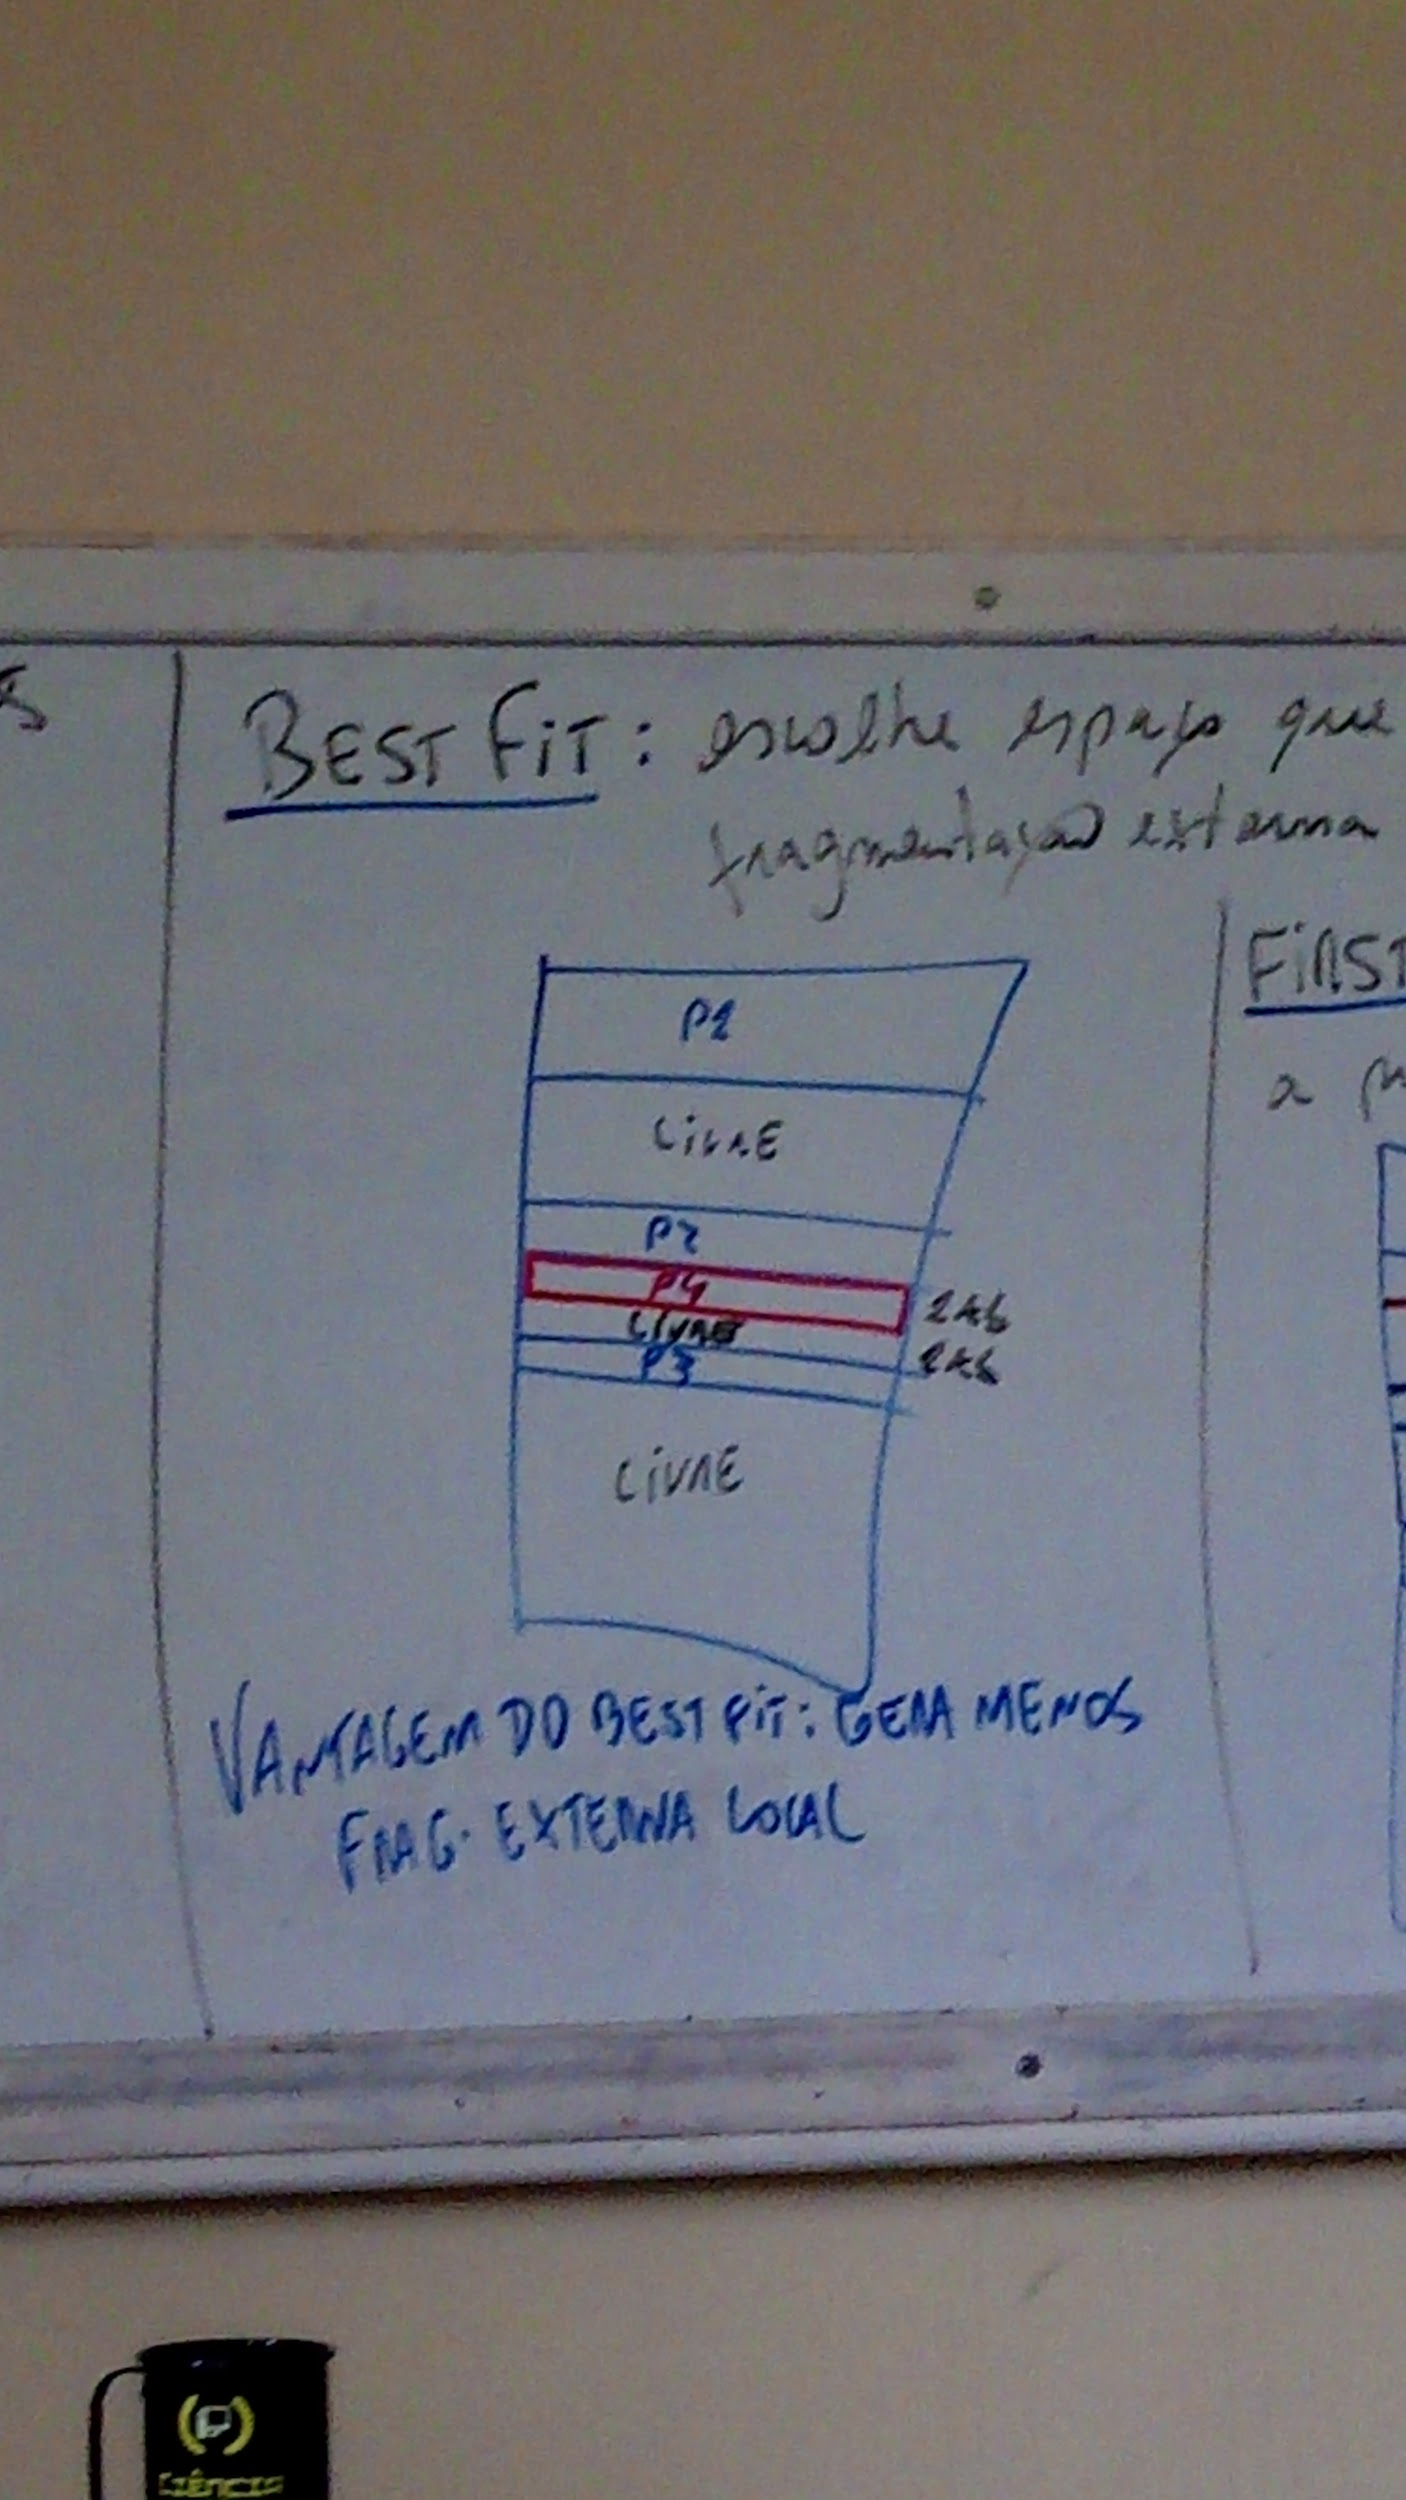 BEST FIT: escolhe espaço que
fragmentação externa
FIRST
a
P1
LIVRE
P2
P4
LIVRE
P3
LIVRE
VANTAGEM DO BEST FIT: GERA MENOS
FRAG. EXTERNA LOCAL
Ciência